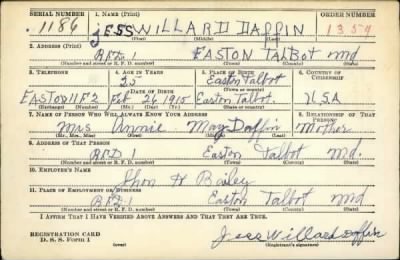 SERIAL NUMBER 1. NAME (Print) ORDER NUMBER
1186 JESS WILLARD DAFFIN 1359
(First) (Middle) (Last)
2. ADDRESS (Print)
RFD EASTON TALBOT Md
(Number and street or R. F. D. number) (Town) (County) (State)
3. TELEPHONE 4. AGE IN YEARS 5. PLACE OF BIRTH 6. COUNTRY OF CITIZENSHIP
25 Easton Talbot
DATE OF BIRTH (Town or county)
EASTON 11F2 Feb 26 1915 Easton Talbot. U.S.A
(Exchange) (Number) (Mo.) (Day) (Yr.) (State or country)
7. NAME OF PERSON WHO WILL ALWAYS KNOW YOUR ADDRESS 8. RELATIONSHIP OF THAT PERSON
Mrs Annie May Daffin Mother
(Mr., Mrs., Miss) (First) (Middle) (Last)
9. ADDRESS OF THAT PERSON
RFD 1 Easton Talbot Md.
(Number and street or R. F. D. number) (Town) (County) (State)
10. EMPLOYER'S NAME
H Bailey
11. PLACE OF EMPLOYMENT OR BUSINESS
RFD 1 Easton Talbot Md
(Number and street or R. F. D. number) (Town) (County) (State)
I AFFIRM THAT I HAVE VERIFIED ABOVE ANSWERS AND THAT THEY ARE TRUE.
REGISTRATION CARD
D. S. S. Form 1 (over) Jess Willard Daffin
(Registrant's signature)